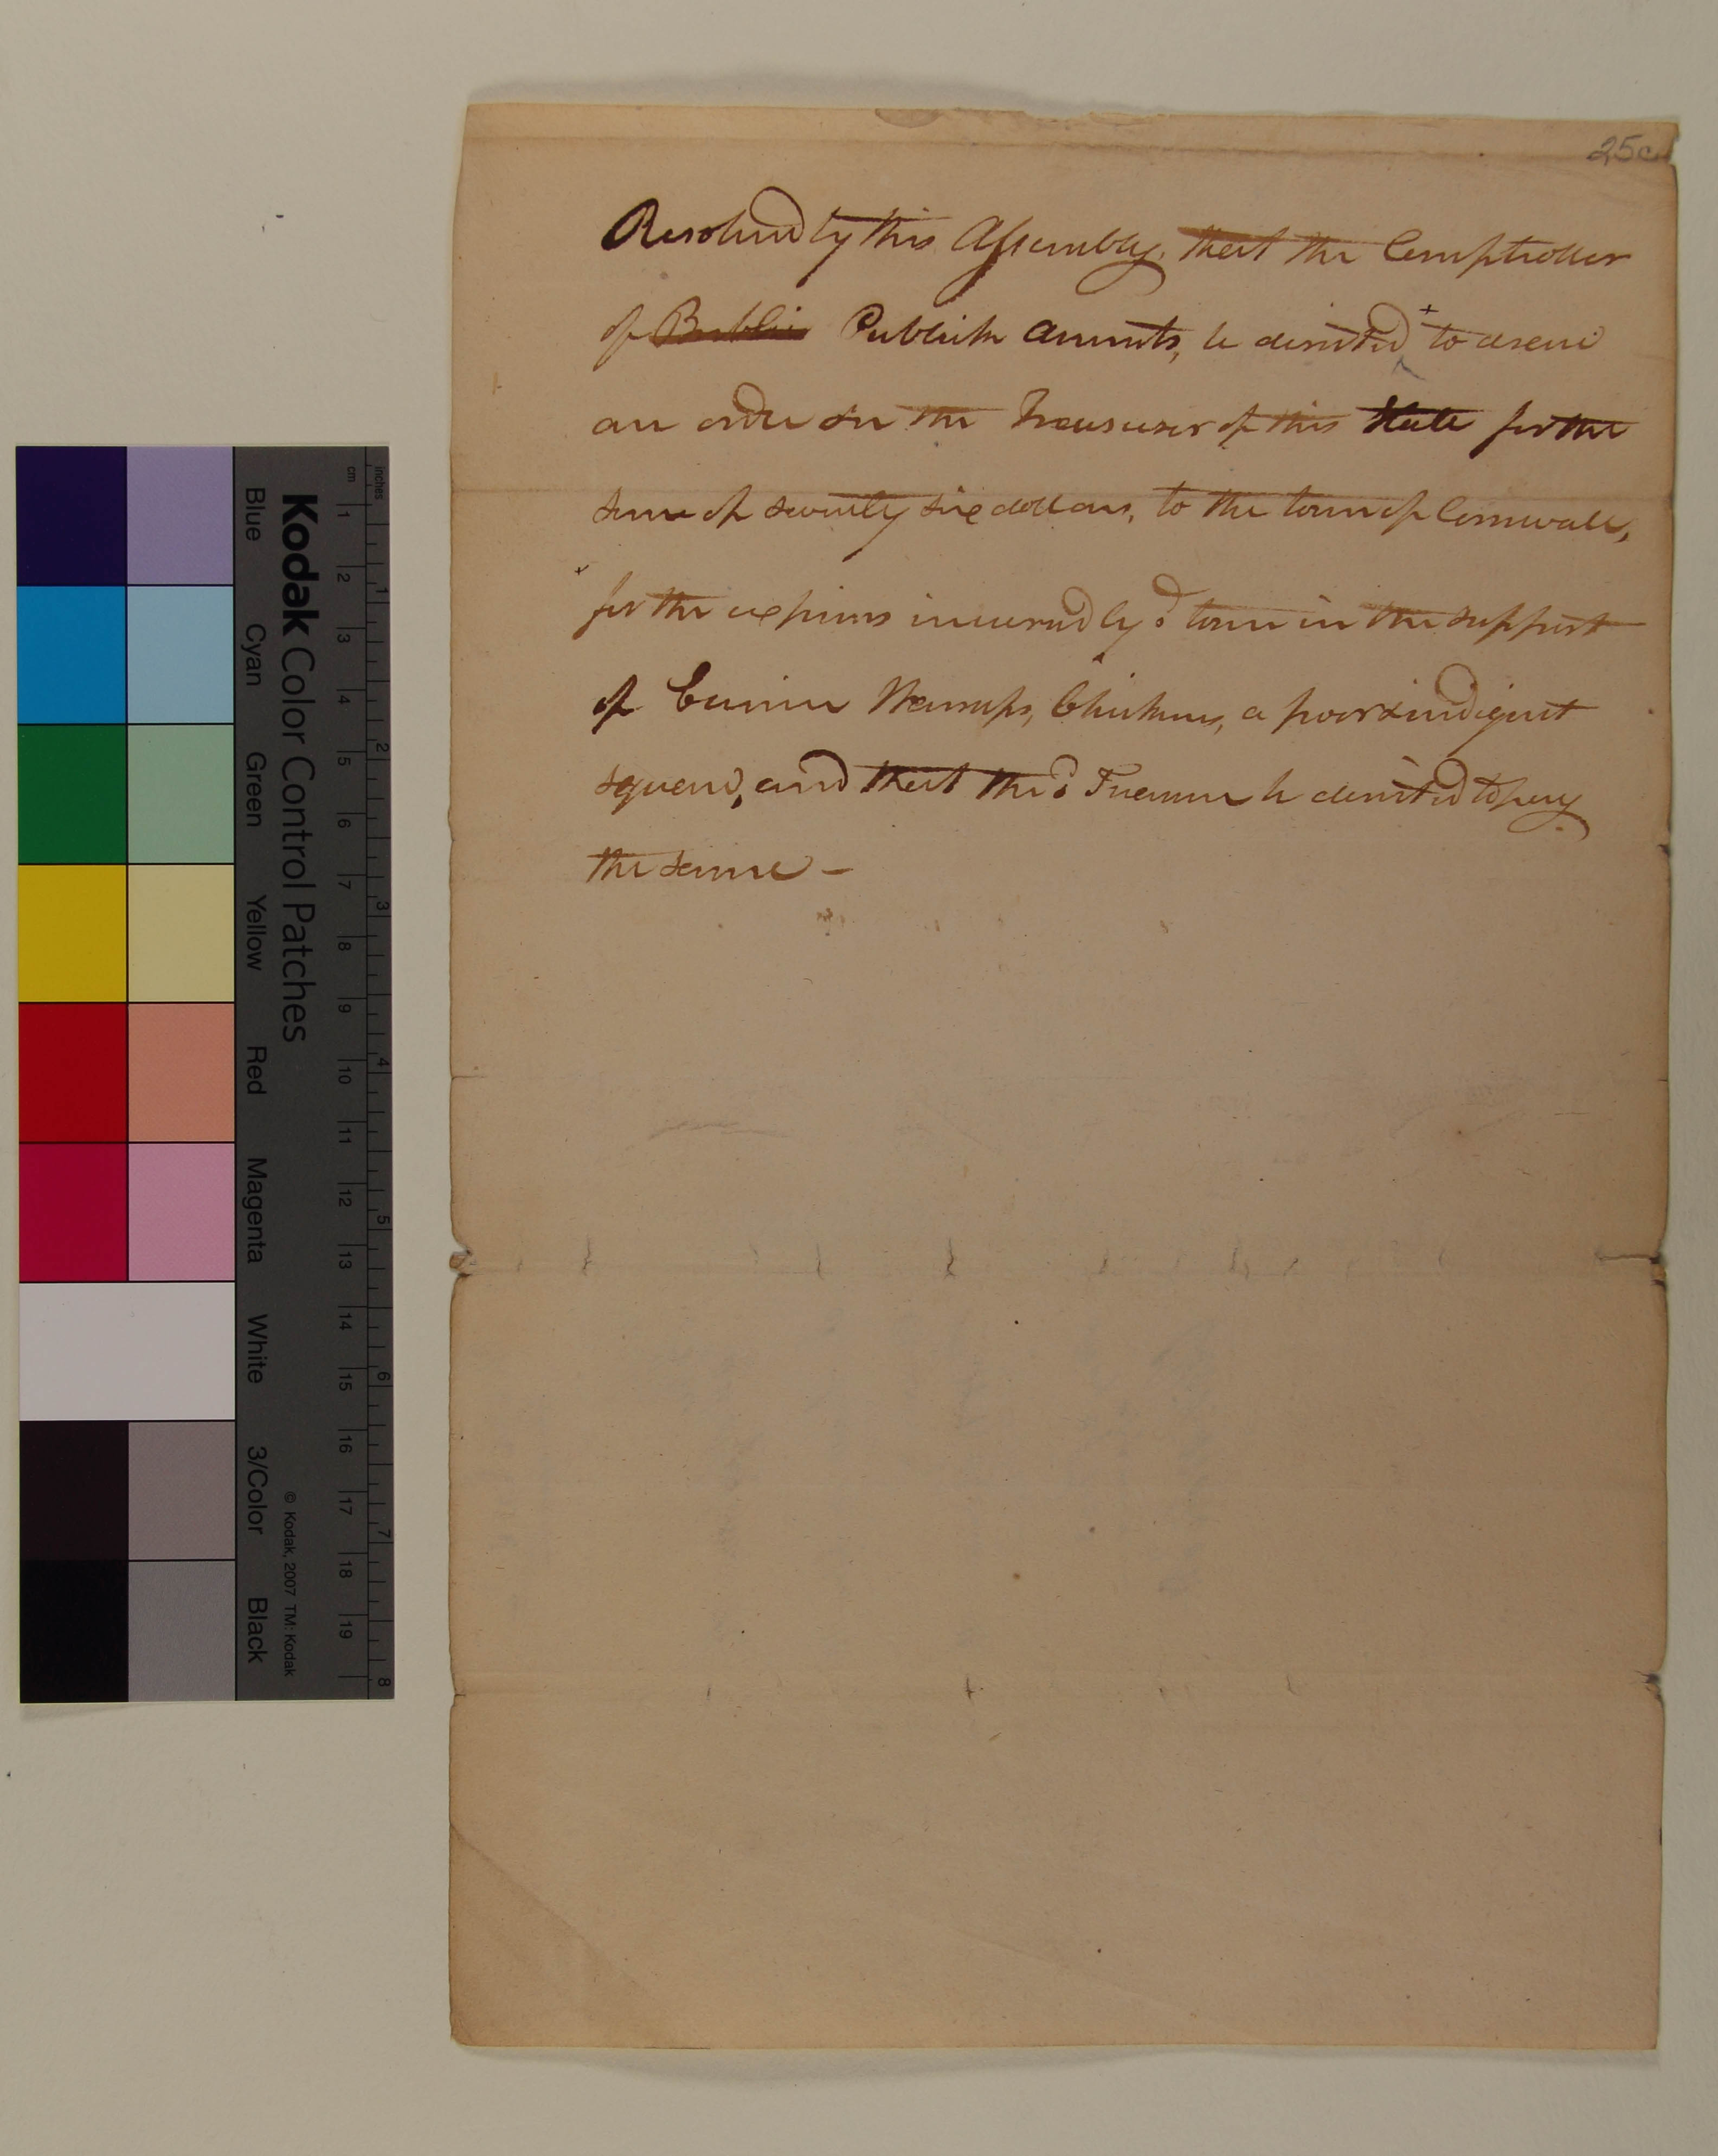 25c
Resolved by this Assembly, that the Comptroller
of Publick Accounts, be directed + to draw
an order on the Treasurer of this State for the
sum of seventy six dollars, to the town of Cornwall,
for the expenses incurred by sd. town in the support
of Eunice Warrups, Chickens, a poor & indigent
squaw, and that the sd. Treasurer be directed to pay
the same –
Kodak Color Control Patches
© Kodak, 2007 TM: Kodak
Blue Cyan Green Yellow Red Magenta White 3/Color Black
inches 1 2 3 4 5 6 7 8
cm 1 2 3 4 5 6 7 8 9 10 11 12 13 14 15 16 17 18 19